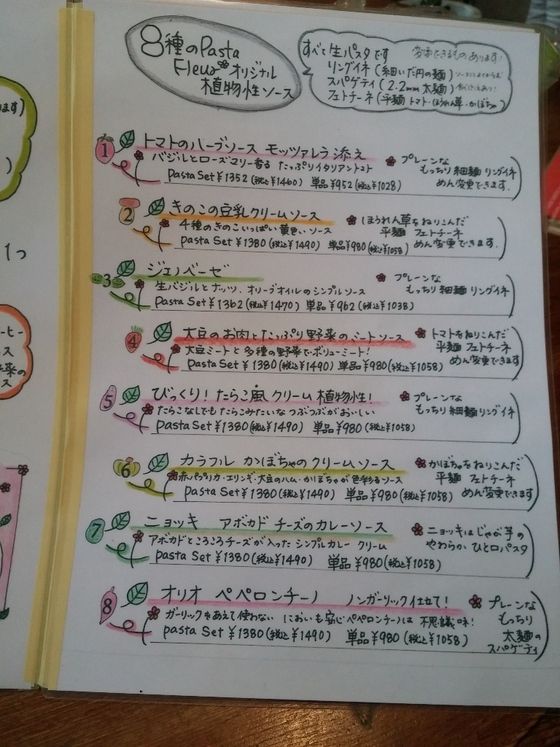 8種のPasta
Fleurオリジナル
植物性ソース
すべて生パスタです 変更できるものあります!
リングイネ(細いだ円の麺)
スパゲティ(2.2mm太麺)
フェトチーネ(平麺トマト・ほうれん草・かぼちゃ)
1 トマトのハーブソース モッツァレラ添え
バジルとローズマリー香る たっぷりイタリアントマト
Pasta Set ¥1352(税込¥1460) 単品¥952(税込¥1028)
プレーンな
もっちり細麺リングイネ
めん変更できます。
2 きのこの豆乳クリームソース
4種のきのこいっぱい 黄色いソース
pasta Set ¥1380(税込¥1490) 単品¥980(税込¥1058)
ほうれん草をねりこんだ
平麺 フェトチーネ
めん変更できます。
3 ジェノベーゼ
生バジルとナッツ、オリーブオイルのシンプルソース
Pasta Set ¥1362(税込¥1470) 単品¥962(税込¥1038)
プレーンな
もっちり細麺リングイネ
4 大豆のお肉とたっぷり野菜のミートソース
大豆ミートと多種の野菜でボリューミート!
Pasta Set ¥1380(税込¥1490) 単品¥980(税込¥1058)
トマトをねりこんだ
平麺 フェトチーネ
めん変更できます
5 びっくり!たらこ風クリーム 植物性!
たらこなしでもたらこみたいなつぶつぶがおいしい
pasta Set ¥1380(税込¥1490) 単品¥980(税込¥1058)
プレーンな
もっちり細麺リングイネ
6 カラフル かぼちゃのクリームソース
赤パプリカ・エリンギ・大豆のハム・かぼちゃが色彩るソース
pasta Set ¥1380(税込¥1490) 単品¥980(税込¥1058)
かぼちゃをねりこんだ
平麺 フェトチーネ
めん変更できます
7 ニョッキ アボカドチーズのカレーソース
アボカドところころチーズが入ったシンプルカレークリーム
pasta Set ¥1380(税込¥1490) 単品¥980(税込¥1058)
ニョッキはじゃが芋の
やわらか ひと口パスタ
8 オリオ ペペロンチーノ ノンガーリック仕立て!
ガーリックをあえて使わない においも安心ペペロンチーノは 不思議味!
pasta Set ¥1380(税込¥1490) 単品¥980(税込¥1058)
プレーンな
もっちり
太麺の
スパゲティ